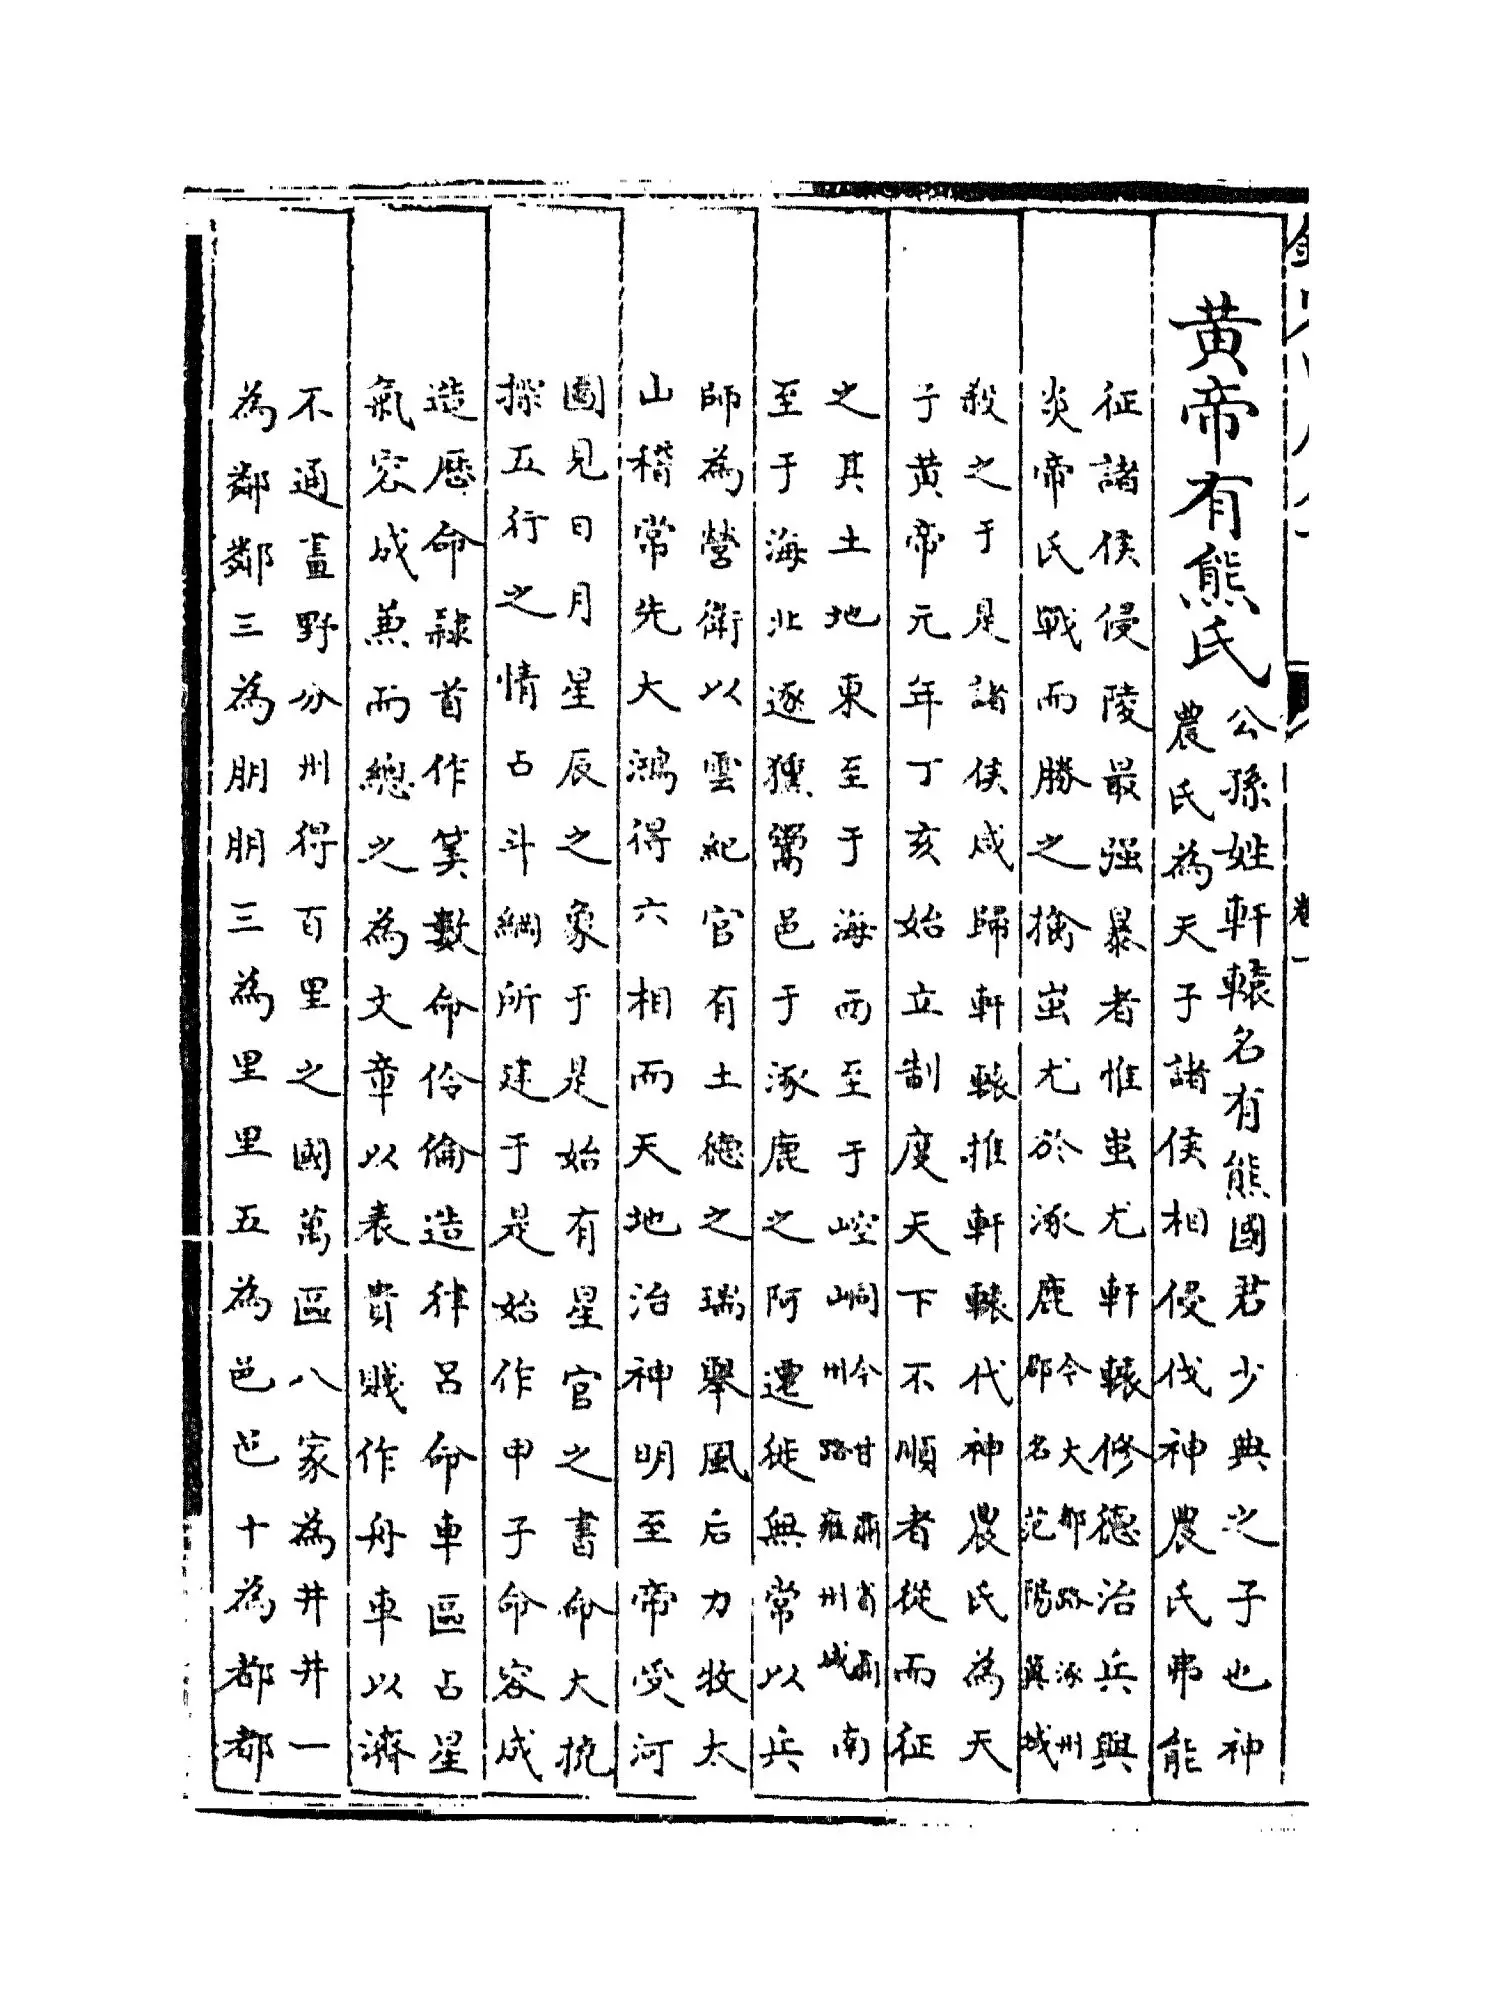 黃帝有熊氏
公孫姓軒轅名有熊國君少典之子也神
農氏為天子諸侯相侵伐神農氏弗能
征諸侯侵陵最强暴者惟蚩尤軒轅修德治兵與
炎帝氏戰而勝之擒蚩尤於涿鹿
今大都路涿州
郡名范陽冀城
殺之于是諸侯咸歸軒轅推軒轅代神農氏為天
子黃帝元年丁亥始立制度天下不順者從而征
之其土地東至于海西至于崆峒
今甘肅省肅
州路雍州域
南
至于海北逐獯鬻邑于涿鹿之阿遷徙無常以兵
師為營衛以雲紀官有土德之瑞舉風后力牧太
山稽常先大鴻得六相而天地治神明至帝受河
圖見日月星辰之象于是始有星官之書命大撓
探五行之情占斗綱所建于是始作甲子命容成
造曆命隸首作筭數命伶倫造律呂命車區占星
氣容成兼而總之為文章以表貴賤作舟車以濟
不通畫野分州得百里之國萬區八家為井井一
為鄰鄰三為朋朋三為里里五為邑邑十為都都
卷一